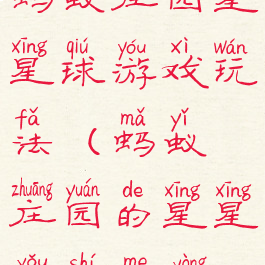 蚂蚁庄园星
xīng qiú yóu xì wán
星球游戏玩
fǎ mǎ yǐ
法（蚂蚁
zhuāng yuán de xīng xīng
庄园的星星
yǒu shí me yòng